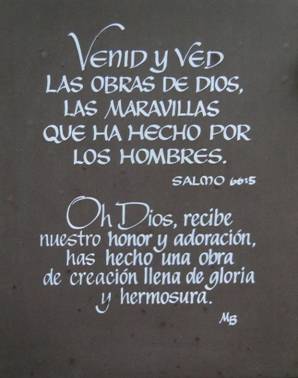 VENID y VED
LAS OBRAS DE DIOS,
LAS MARAVILLAS
QUE HA HECHO POR
LOS HOMBRES.
SALMO 66:5
Oh Dios, recibe
nuestro honor y adoración,
has hecho una obra
de creación llena de gloria
y hermosura.
MB